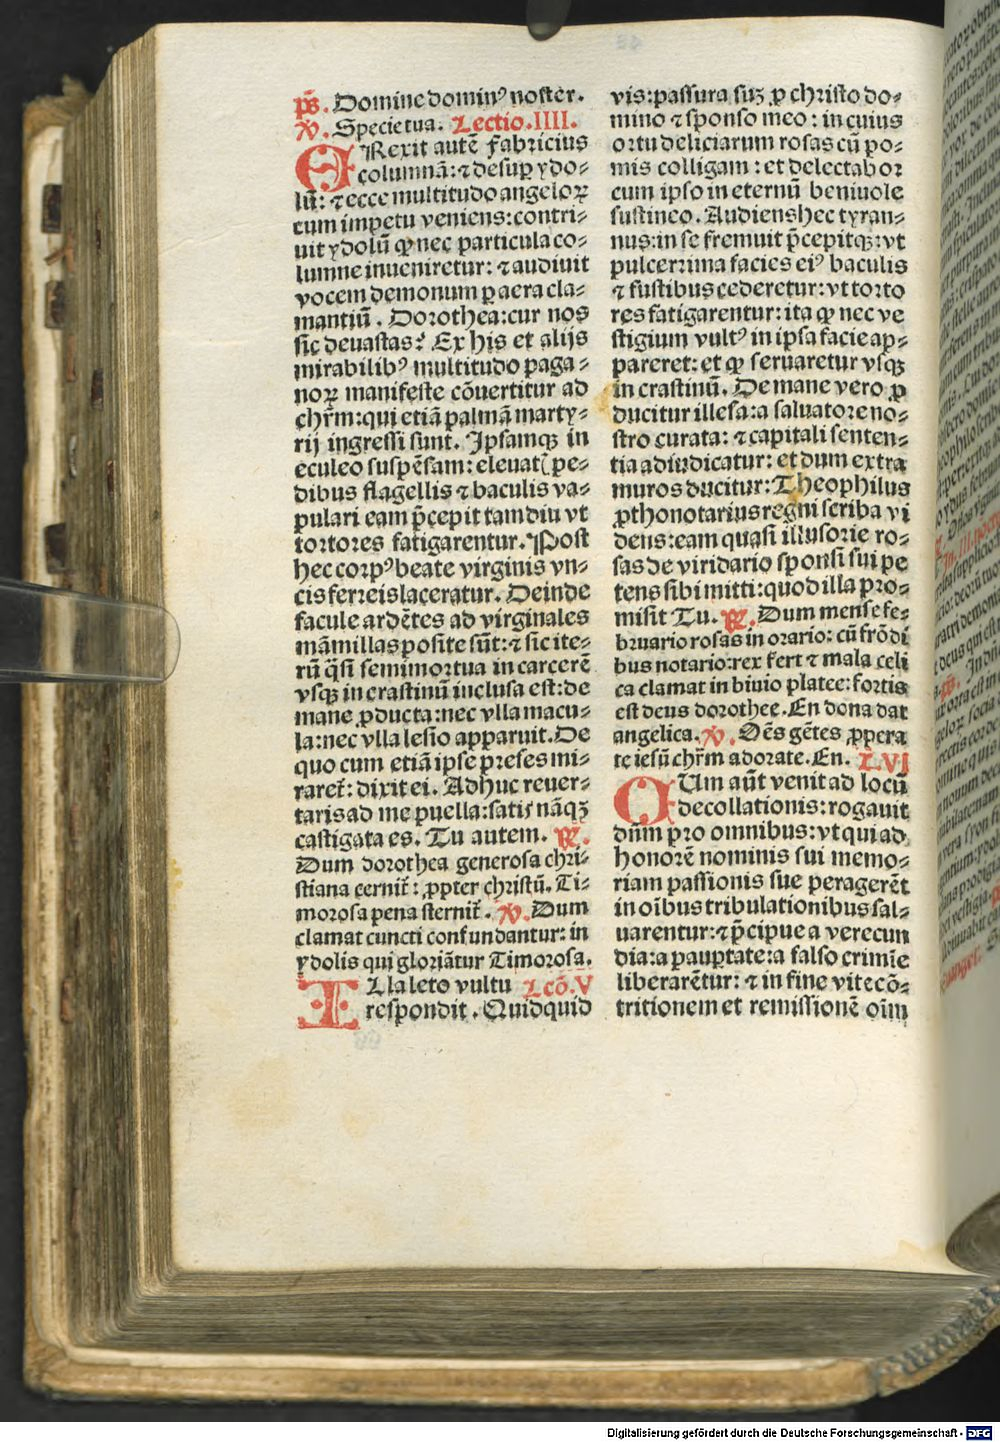 p̄s. Domine domin⁹ noster.
℣. Specie tua. Lectio.IIII.
ERexit autē fabricius
columnā: ⁊ desuꝑ ydo-
lū: ⁊ ecce multitudo angeloꝝ
cum impetu veniens: contri-
uit ydolū ꝙ nec particula co-
lumne inueniretur: ⁊ audiuit
vocem demonum ꝑ aera cla-
mantiū. Dorothea: cur nos
sic deuastas? Ex his et alijs
mirabilib⁹ multitudo paga-
noꝝ manifeste cōuertitur ad
chr̄m: qui etiā palmā marty-
rij ingressi sunt. Ipsamqꝫ in
eculeo suspēsam: eleuat︦ pe-
dibus flagellis ⁊ baculis va-
pulari eam p̄cepit tam diu vt
tortores fatigarentur. Post
hec corp⁹ beate virginis vn-
cis ferreis laceratur. Deinde
facule ardētes ad virginales
māmillas posite sūt: ⁊ sic ite-
rū q̄si semimortua in carcerē
vsqꝫ in crastinū inclusa est: de
mane ꝓducta: nec vlla macu-
la: nec vlla lesio apparuit. De
quo cum etiā ipse preses mi-
raret̄: dixit ei. Adhuc reuer-
taris ad me puella: satis nāqꝫ
castigata es. Tu autem. ℟.
Dum dorothea generosa chri-
stiana cernit̄: ꝓpter christū. Ti-
morosa pena sternit̄. ℣. Dum
clamat cuncti confundantur: in
ydolis qui gloriātur Timorosa.
ILla leto vultu Lcō.V
respondit. Quidquid
vis: passura suꝫ ꝓ christo do-
mino ⁊ sponso meo: in cuius
ortu deliciarum rosas cū po-
mis colligam: et delectabor
cum ipso in eternū beniuole
sustineo. Audiens hec tyran-
nus: in se fremuit p̄cepitqꝫ: vt
pulcerrima facies ei⁹ baculis
⁊ fustibus cederetur: vt torto
res fatigarentur: ita ꝙ nec ve
stigium vult⁹ in ipsa facie ap-
pareret: et ꝙ seruaretur vsqꝫ
in crastinū. De mane vero ꝓ
ducitur illesa: a saluatore no-
stro curata: ⁊ capitali senten-
tia adiudicatur: et dum extra
muros ducitur: Theophilus
ꝓthonotarius regni scriba vi
dens: eam quasi illusorie ro-
sas de viridario sponsi sui pe
tens sibi mitti: quod illa pro-
misit Tu. ℟. Dum mense fe-
bruario rosas in orario: cū frōdi
bus notario: rex fert ⁊ mala celi
ca clamat in biuio platee: fortis
est deus dorothee. En dona dat
angelica. ℣. Oēs gētes ꝓpera
te iesū chr̄m adorate. En. L.VI
CUm aūt venit ad locū
decollationis: rogauit
dūm pro omnibus: vt qui ad
honorē nominis sui memo-
riam passionis sue peragerēt
in oībus tribulationibus sal-
uarentur: ⁊ p̄cipue a verecun
dia: a pauꝑtate: a falso crimīe
liberarētur: ⁊ in fine vite cō-
tritionem et remissionē oīm
Digitalisierung gefördert durch die Deutsche Forschungsgemeinschaft - DFG